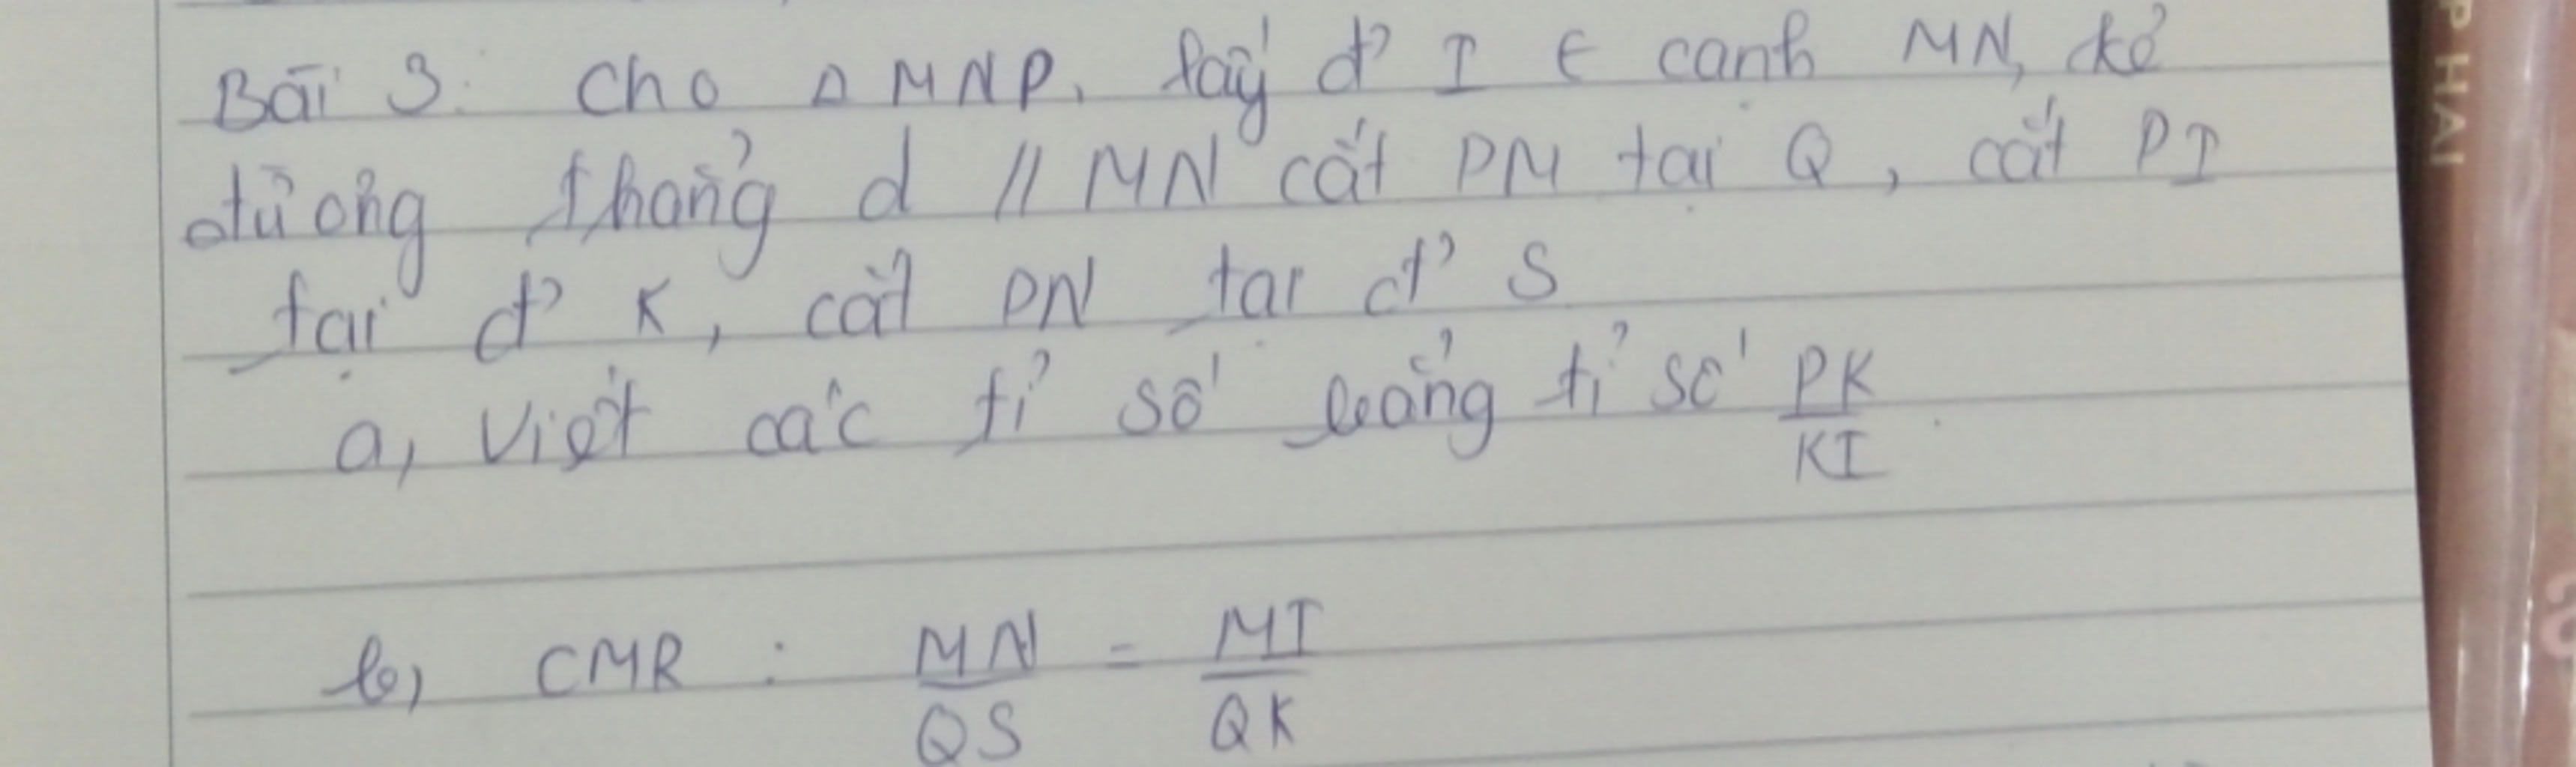 Bài 3: Cho Δ MNP. Lấy đ' I ∈ cạnh MN, kẻ
đường thẳng d // MN cắt PM tại Q, cắt PI
tại đ' K, cắt PN tại đ' S
a, Viết các tỉ số bằng tỉ số PK/KI.
b, CMR : MN/QS = MI/QK
P HAI